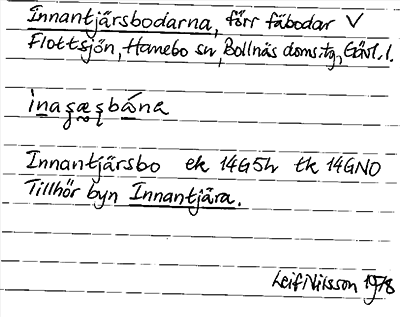 Innantjärsbodarna, förr fäbodar V
Flottsjön, Hanebo sn, Bollnäs doms:tg, Gävl. l.
Innantjärsbo ek 14G5h tk 14GNO
Tillhör byn Innantjära.
Leif Nilsson 1978